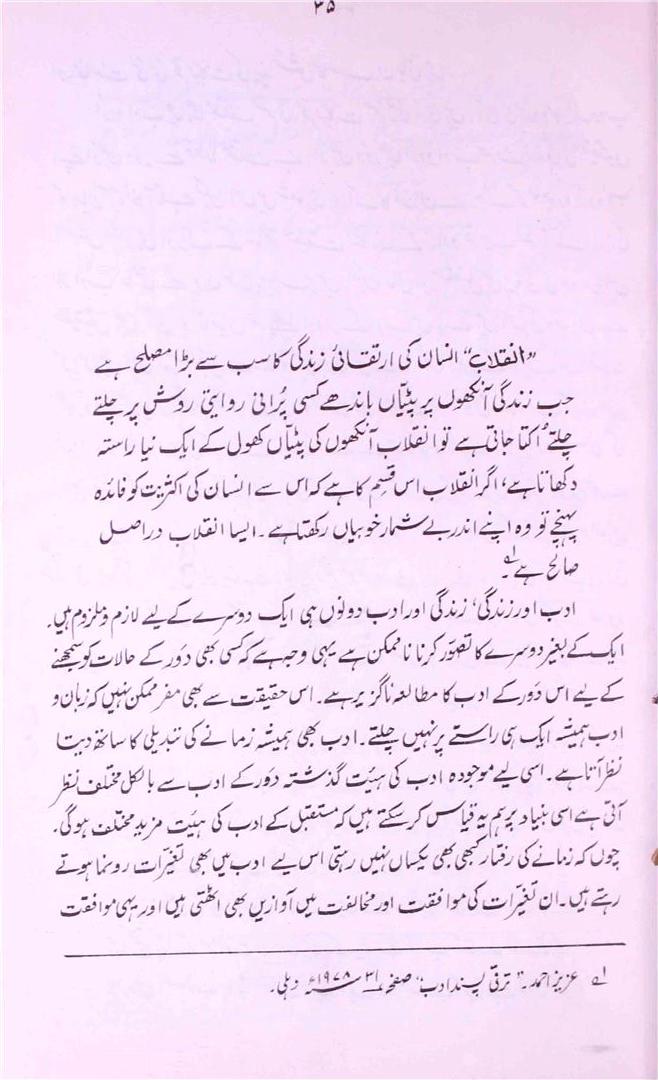 ۳۵
”انقلاب“ انسان کی ارتقائی زندگی کا سب سے بڑا مصلح ہے
جب زندگی آنکھوں پر پٹیّاں باندھے کسی پُرانی روایتی روش پر چلتے
چلتے اُکتا جاتی ہے تو انقلاب آنکھوں کی پٹیّاں کھول کے ایک نیا راستہ
دکھاتا ہے، اگر انقلاب اس قسم کا ہے کہ اس سے انسان کی اکثریت کو فائدہ
پہنچے تو وہ اپنے اندر بے شمار خوبیاں رکھتا ہے۔ ایسا انقلاب دراصل
صالح ہے ؂۱۔
ادب اور زندگی، زندگی اور ادب دونوں ہی ایک دوسرے کے لیے لازم و ملزوم ہیں۔
ایک کے بغیر دوسرے کا تصوّر کرنا ناممکن ہے یہی وجہ ہے کہ کسی بھی دَور کے حالات کو سمجھنے
کے لیے اس دَور کے ادب کا مطالعہ ناگزیر ہے۔ اس حقیقت سے بھی مفر ممکن نہیں کہ زبان و
ادب ہمیشہ ایک ہی راستے پر نہیں چلتے۔ ادب بھی ہمیشہ زمانے کی تبدیلی کا ساتھ دیتا
نظر آتا ہے۔ اسی لیے موجودہ ادب کی ہیئت گذشتہ دَور کے ادب سے بالکل مختلف نظر
آتی ہے اسی بنیاد پر ہم یہ قیاس کر سکتے ہیں کہ مستقبل کے ادب کی ہیئت مزید مختلف ہوگی۔
چوں کہ زمانے کی رفتار کبھی بھی یکساں نہیں رہتی اس لیے ادب میں بھی تغیّرات رونما ہوتے
رہتے ہیں۔ ان تغیّرات کی موافقت اور مخالفت میں آوازیں بھی اٹھتی ہیں اور یہی موافقت
؂۱ عزیز احمد۔ ”ترقی پسند ادب“ صفحہ ۳۱ ۱۹۷۸ء دہلی۔